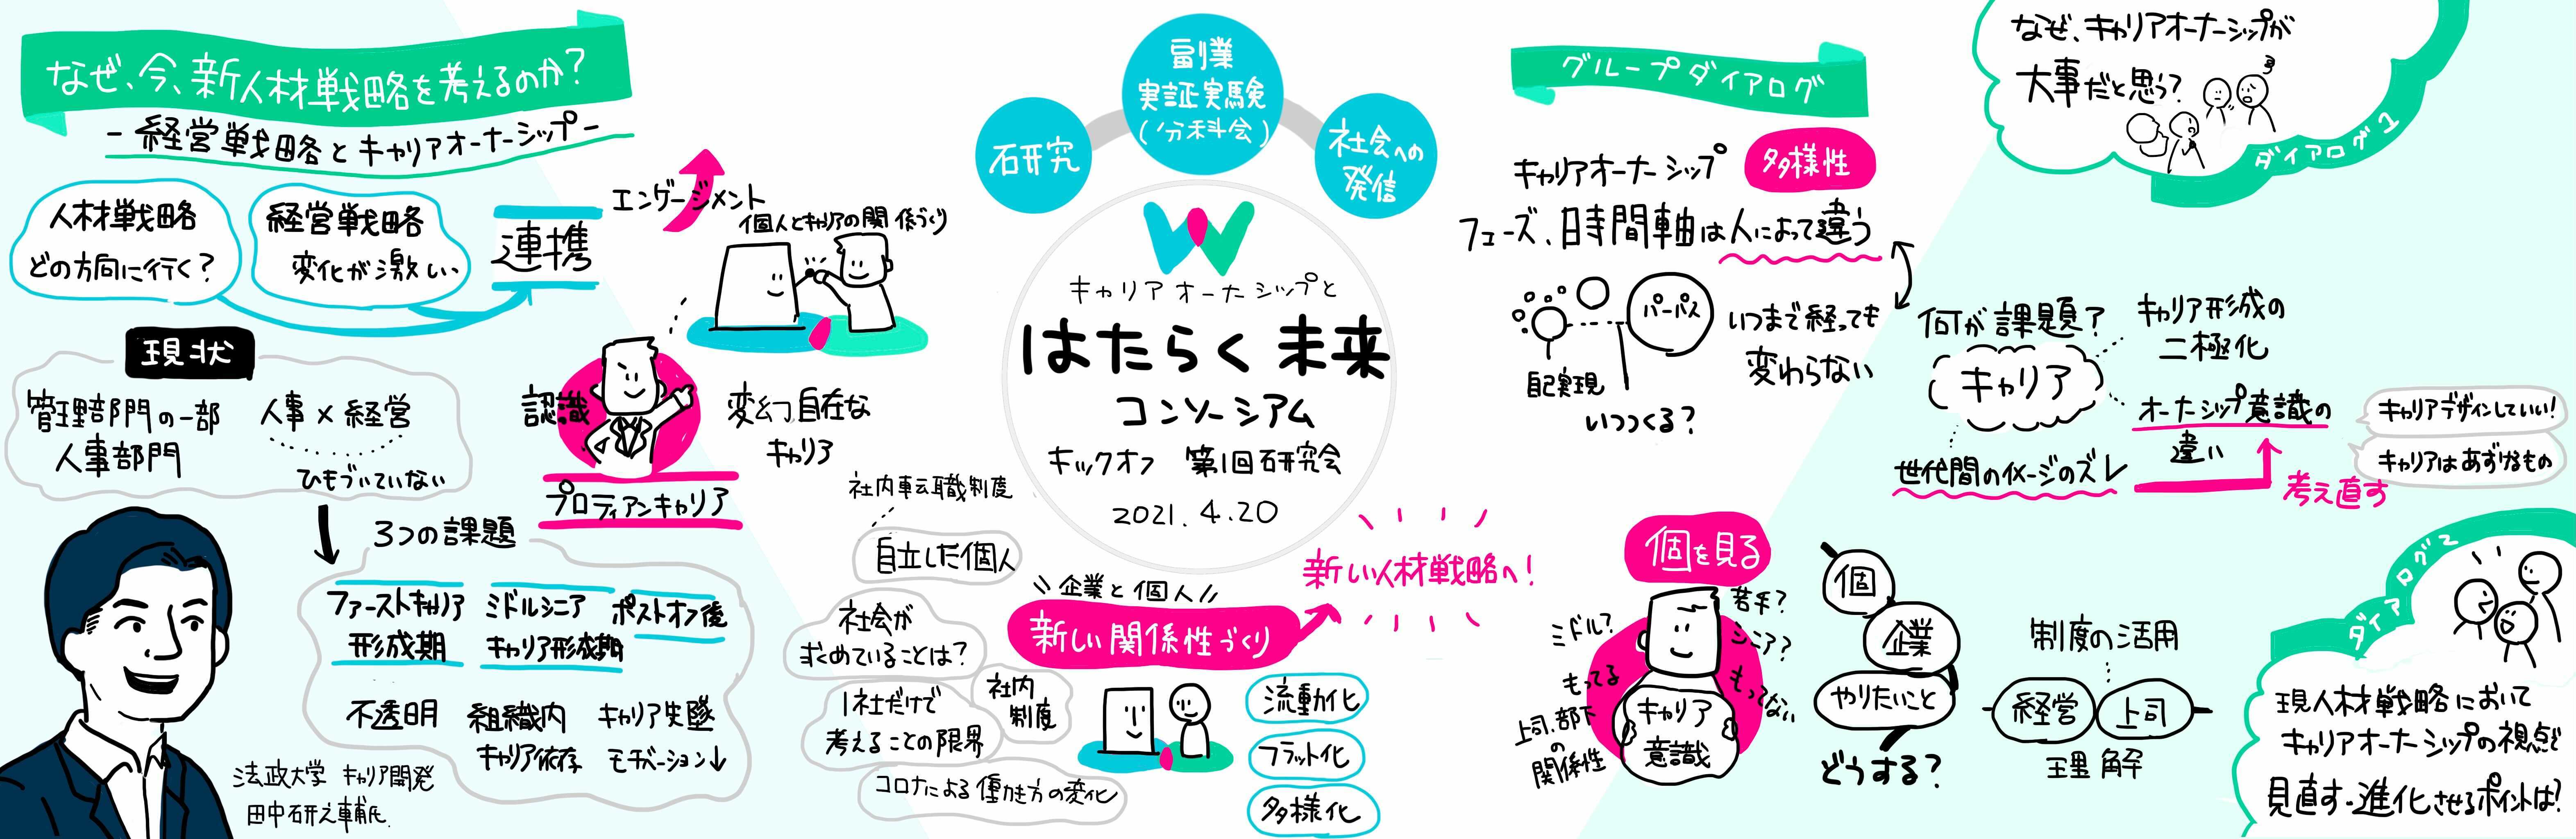 なぜ、今、新人材戦略を考えるのか?
-経営戦略とキャリアオーナーシップ-
人材戦略
どの方向に行く?
経営戦略
変化が激しい
連携
エンゲージメント
個人とキャリアの関係づくり
現状
管理部門の一部
人事部門
人事×経営
ひもづいていない
認識
変幻自在な
キャリア
プロティアンキャリア
3つの課題
ファーストキャリア
形成期
ミドルシニア
キャリア形成期
ポストオフ後
不透明
組織内
キャリア依存
キャリア失墜
モチベーション↓
法政大学 キャリア開発
田中研之輔氏
研究
副業
実証実験
(分科会)
社会への
発信
キャリアオーナーシップと
はたらく未来
コンソーシアム
キックオフ 第1回研究会
2021.4.20
社内転職制度
自立した個人
社会が
求めていることは?
社内
制度
1社だけで
考えることの限界
コロナによる働き方の変化
企業と個人
新しい関係性づくり
新しい人材戦略へ!
流動化
フラット化
多様化
グループダイアログ
キャリアオーナーシップ
多様性
フェーズ、時間軸は人によって違う
パーパス
自己実現
いつつくる?
いつまで経っても
変わらない
なぜ、キャリアオーナーシップが
大事だと思う?
ダイアログ1
何が課題?
キャリア
キャリア形成の
二極化
オーナーシップ意識の
違い
世代間のイメージのズレ
考え直す
キャリアデザインしていい!
キャリアはあずけるもの
個を見る
ミドル?
若手?
シニア?
もってる
もってない
上司、部下
の
関係性
キャリア
意識
個
企業
やりたいこと
どうする?
制度の活用
経営
上司
理解
ダイアログ2
現人材戦略において
キャリアオーナーシップの視点で
見直す・進化させるポイントは?